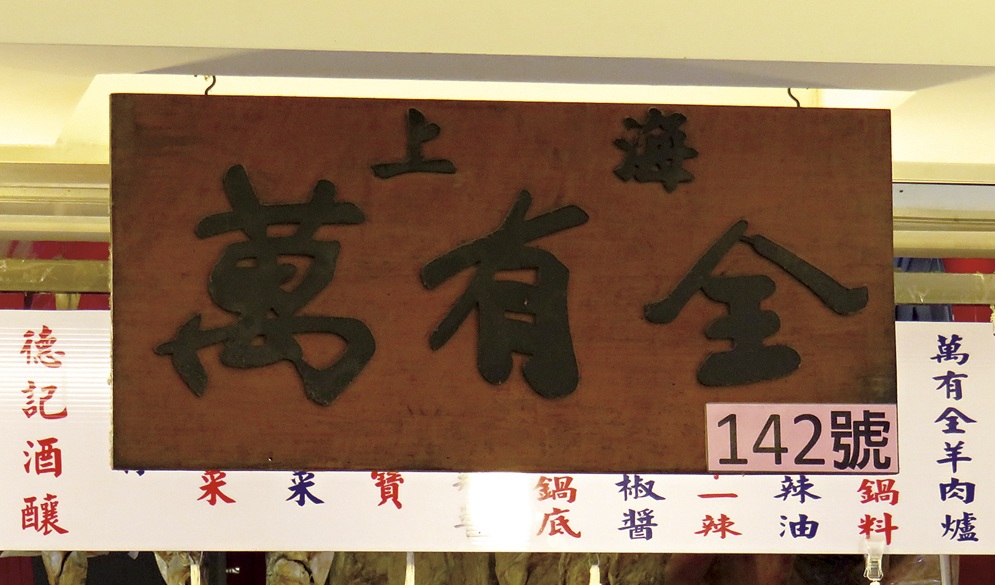 上海
萬有全
142號
萬有全羊肉爐
鍋料
辣油
辣
椒醬
鍋底
寶
菜
菜
德記酒釀